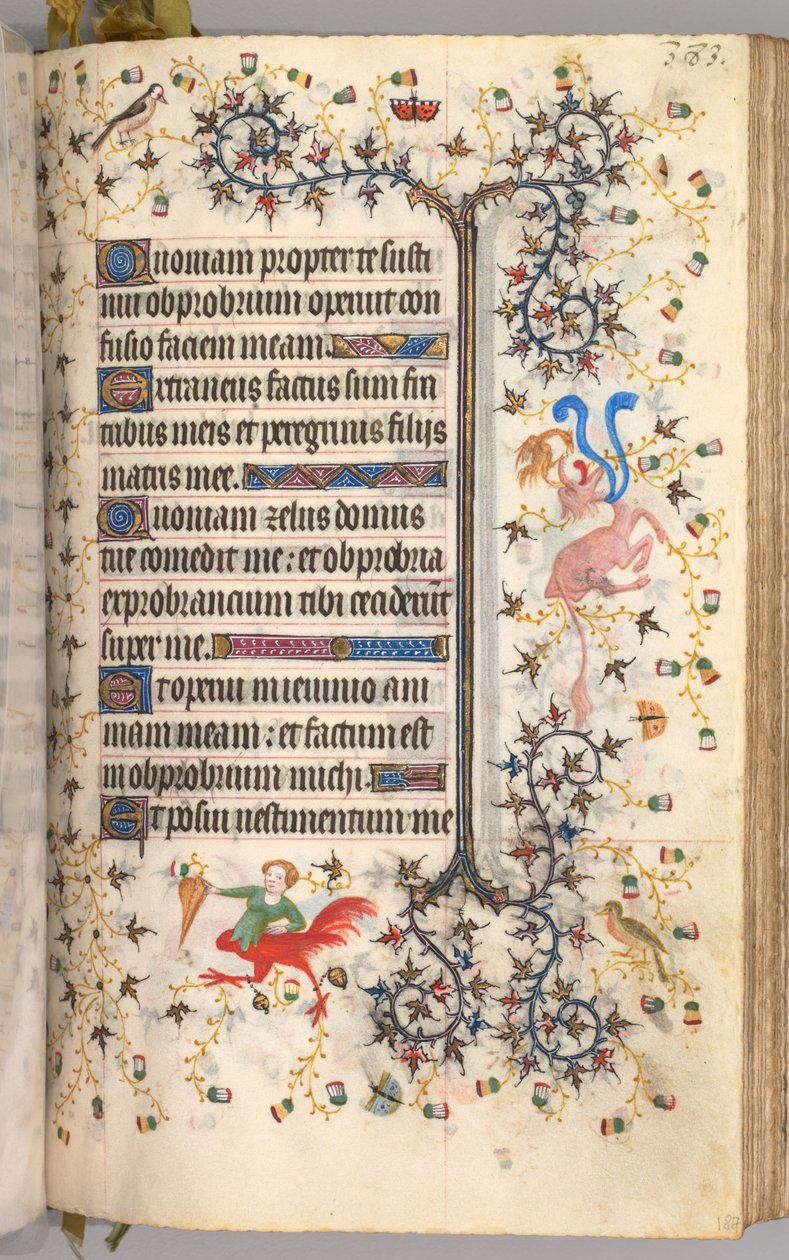 383.
Quoniam propter te susti
nui obprobrium operuit con
fusio faciem meam.
Extraneus factus sum fra
tribus meis et peregrinus filijs
matris mee.
Quoniam zelus domus
tue comedit me: et obprobria
exprobrancium tibi ceciderūt
super me.
Et operui in ieiunio ani
mam meam: et factum est
in obprobrium michi.
Et posui uestimentum me
187